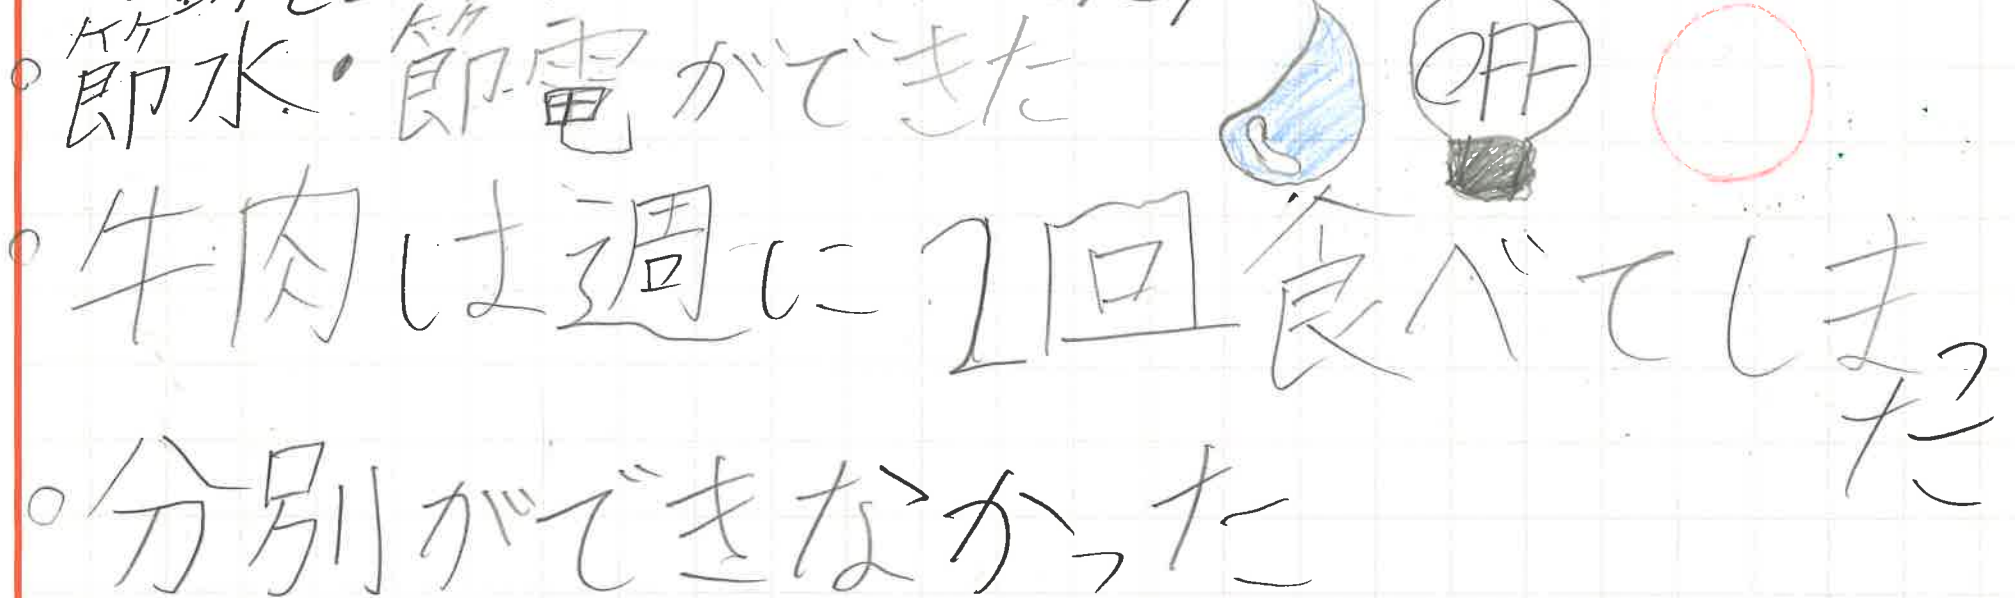 ○節水・節電ができた OFF
○牛肉は週に1回食べてしまった
○分別ができなかった